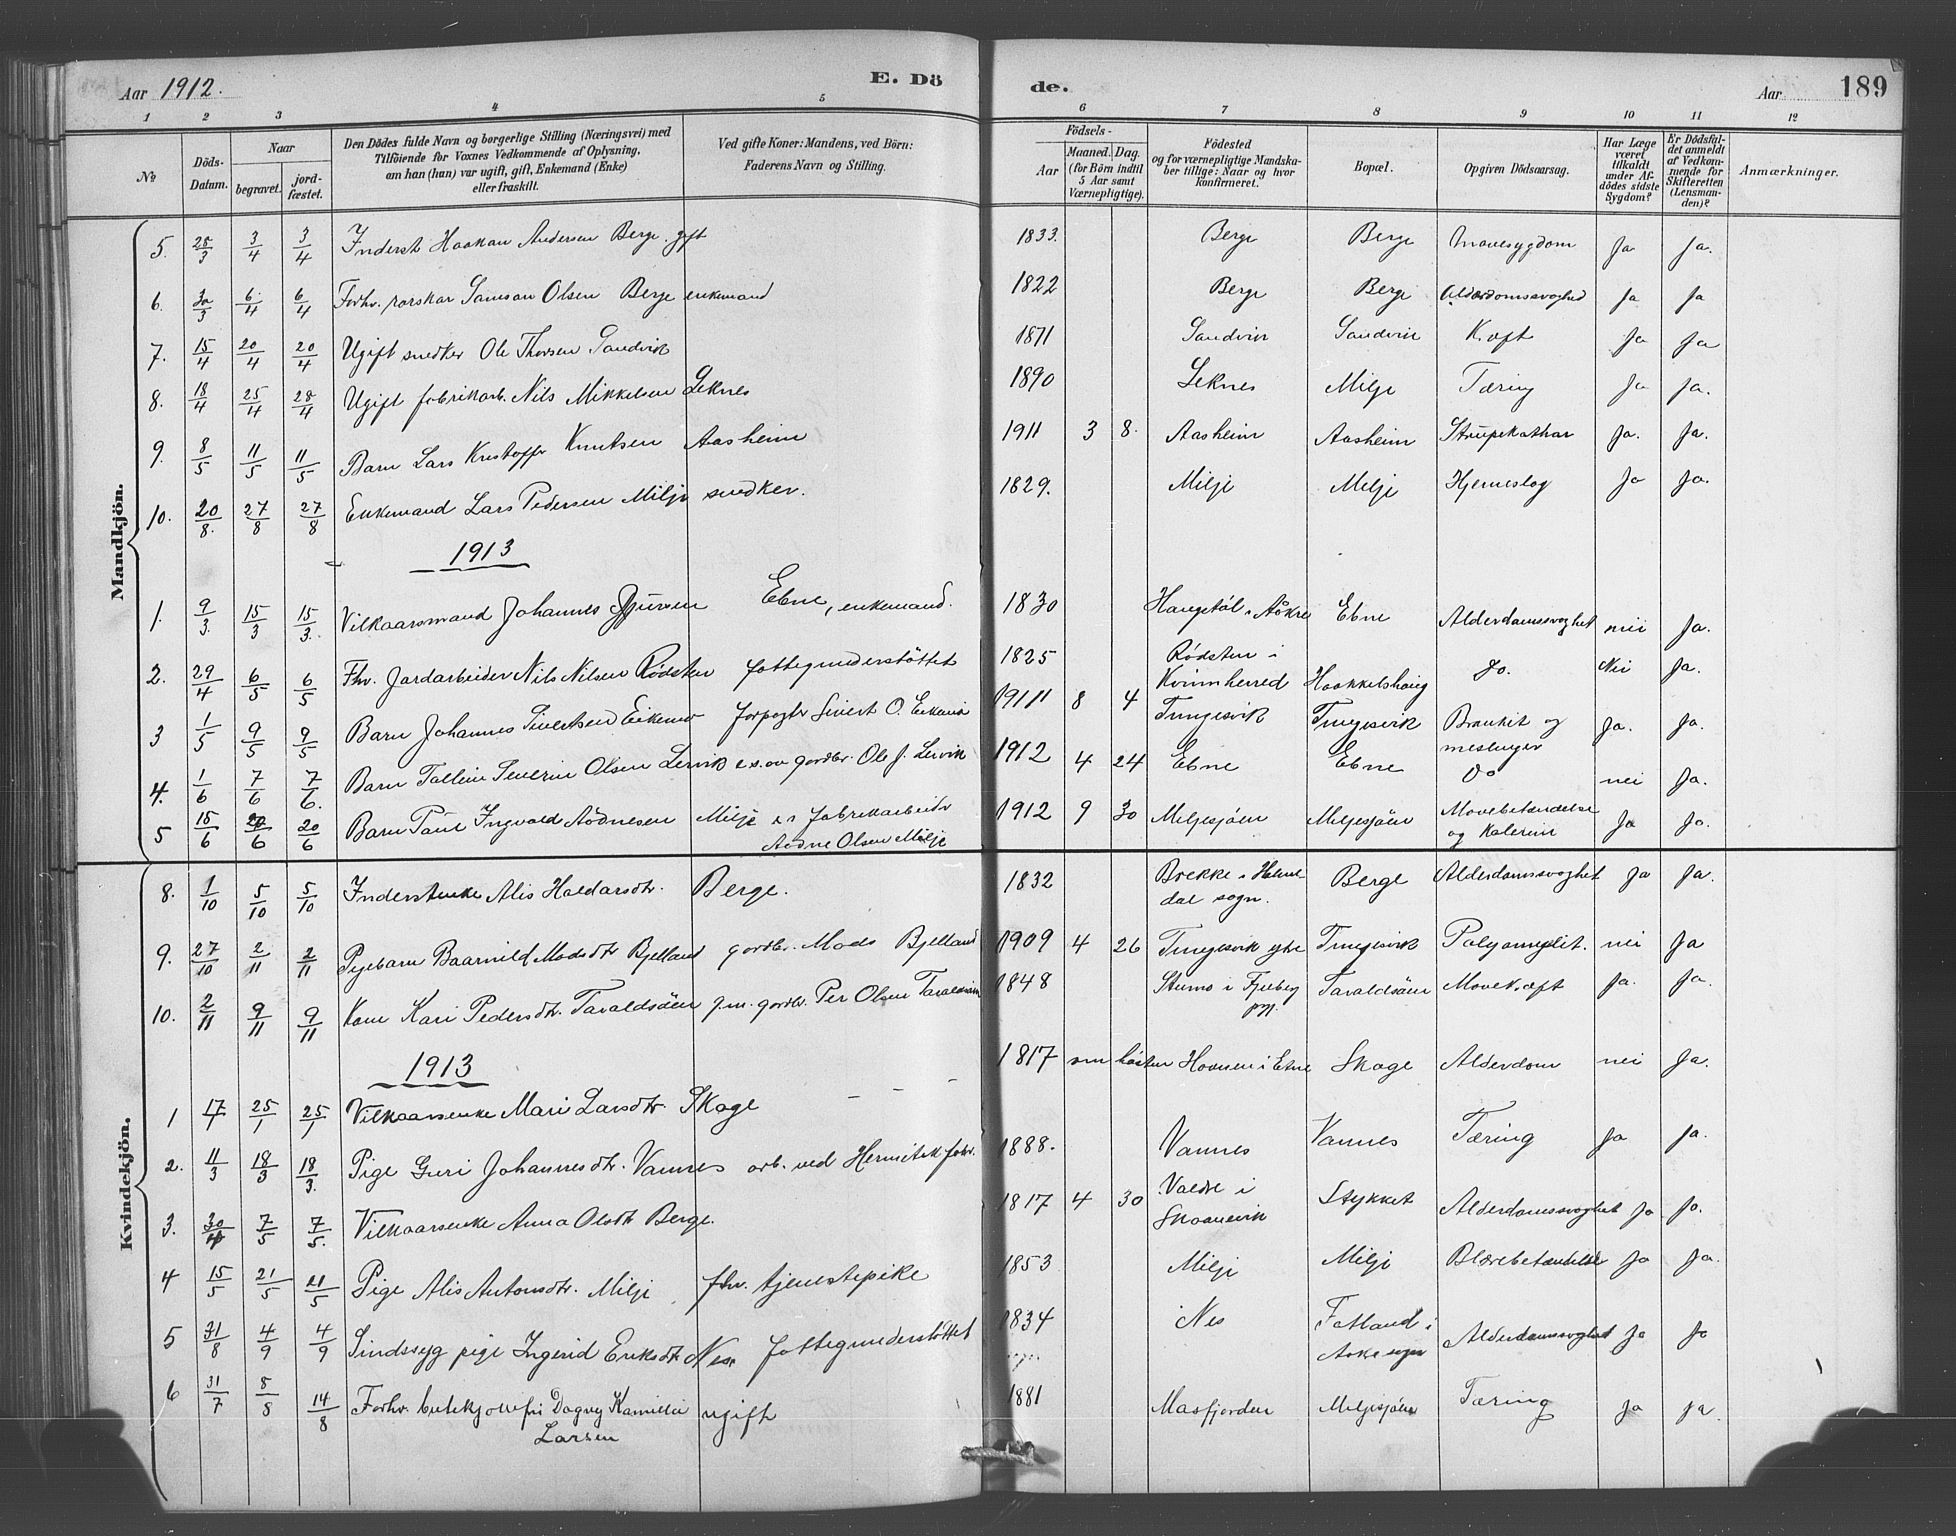 Aar 1912. E. Dö de. Aar 189
1 2 3 4 5 6 7 8 9 10 11 12
№ Döds-Datum. Naar begravet. jordfæstet. Den Dödes fulde Navn og borgerlige Stilling (Næringsvei) med Tilföiende for Voxnes Vedkommende af Oplysning, om han (hun) var ugift, gift, Enkemand (Enke) eller fraskilt. Ved gifte Koner: Mandens, ved Börn: Faderens Navn og Stilling. Födsels- Aar Maaned. Dag. (for Börn indtil 5 Aar samt Værnepligtige). Födested og for værnepligtige Mandskaber tillige: Naar og hvor konfirmeret. Bopæl. Opgiven Dödsaarsag. Har Læge været tilkaldt under Afdödes sidste Sygdom? Er Dödsfaldet anmeldt af Vedkommende for Skifteretten (Lensmanden)? Anmærkninger.
Mandkjön.
5. 28/3 3/4 3/4 Inderst Haakan Andersen Berge. gift 1833. Berge Berge Mavesygdom Ja Ja.
6. 30/3 6/4 6/4 Forhv. Samson Olsen Berge enkemand 1822 Berge Berge Alderdomssvaghed Ja Ja
7. 15/4 20/4 20/4 Ugift snedker Ole Thorsen Sandvik 1871 Sandvin Sandvin Kræft Ja Ja
8. 18/4 25/4 28/4 Ugift fabrikarb. Nils Mikkelsen Leknes 1890 Leknes Milje Tæring Ja Ja.
9. 8/5 11/5 11/5 Barn Lars Kristoffer Knutsen Aasheim 1911 3 8. Aasheim Aasheim Strupekathar Ja. Ja.
10. 20/8. 27/8 27/8 Enkemand Lars Pedersen Milje snedker. 1829. Milje Milje Hjerneslag Ja Ja.
1913
1. 9/3. 15/3 15/3. Vilkaarsmand Johannes Ebne, enkemand. 1830 i Aakre Ebne Alderdomssvaghet nei Ja.
2. 29/4 6/5 6/5 Fhv. Jordarbeider Nils Nilsen Rødsten fattigunderstøttet 1825 Rødsten i Kvinnherred Do. Nei Ja.
3 1/5 9/5 9/5 Barn Johannes Sivertsen Eikemo forpagter Sivert O. 1911 8 4 Tungesvik Tungesvik Bronkit og meslinger Ja. Ja.
4. 1/6 7/6 7/6. Barn Severin Olsen Lervik gardbr. Ole J. Lervik 1912 4 24 Ebne Ebne Do nei Ja.
5 15/6 20/6 20/6 Barn Paul Ingvald Aadnesen Milje fabrikarbeider Aadne Olsen Milje 1912 9 30 Miljesjøen Miljesjøen Mavebetændelse og Ja Ja.
Kvindekjön.
8. 1/10 5/10 5/10 Inderstenke Alis Haldorsdtr. Berge. 1832 Brekke i sogn. Berge Alderdomssvaghet Ja Ja.
9. 27/10 2/11 2/11 Pigebarn Madsdtr Bjelland gardbr. Mads Bjelland 1909 4 26 Tungesvik ytre Tungesvik nei Ja
10. 2/11 9/11 9/11 Kone Kari Pedersdtr. Tavaldsøen g.m. gardbr. Per Olsen 1848 i Fjelberg pgj. Tavaldsøen Mavekræft Ja. Ja.
1913
1 17/1 25/1 25/1 Vilkaarsenke Mari Larsdtr. Skage – – 1817 om høsten i Etne Skage Alderdom nei Ja.
2. 11/3 18/3 18/3. Pige Guri Johannesdtr. Vannes arb. ved Hermitek fabr. 1888. Vannes Vannes Tæring Ja Ja.
3. 30/4 7/5 7/5. Vilkaarsenke Anna Olsdtr Berge. 1817 4 30 Valdre i Skaanevik Stykket Alderdomssvaghet Ja Ja.
4 15/5 21/5 21/5 Pige Alis Antonsdtr. Milje fhv. tjenestepike 1853 Milje Milje Blærebetændelse Ja Ja.
5 31/8 4/9 4/9 Sindssyg pige Ingerid Eriksdtr Nes. fattigunderstøttet 1834 Nes Fatland i Aakre sogn Alderdomssvaghet Ja Ja
6 31/7 8/8 14/8 Forhv. Dagny Kamilla Larsen ugift 1881 Masfjorden Miljesjøen Tæring Ja Ja